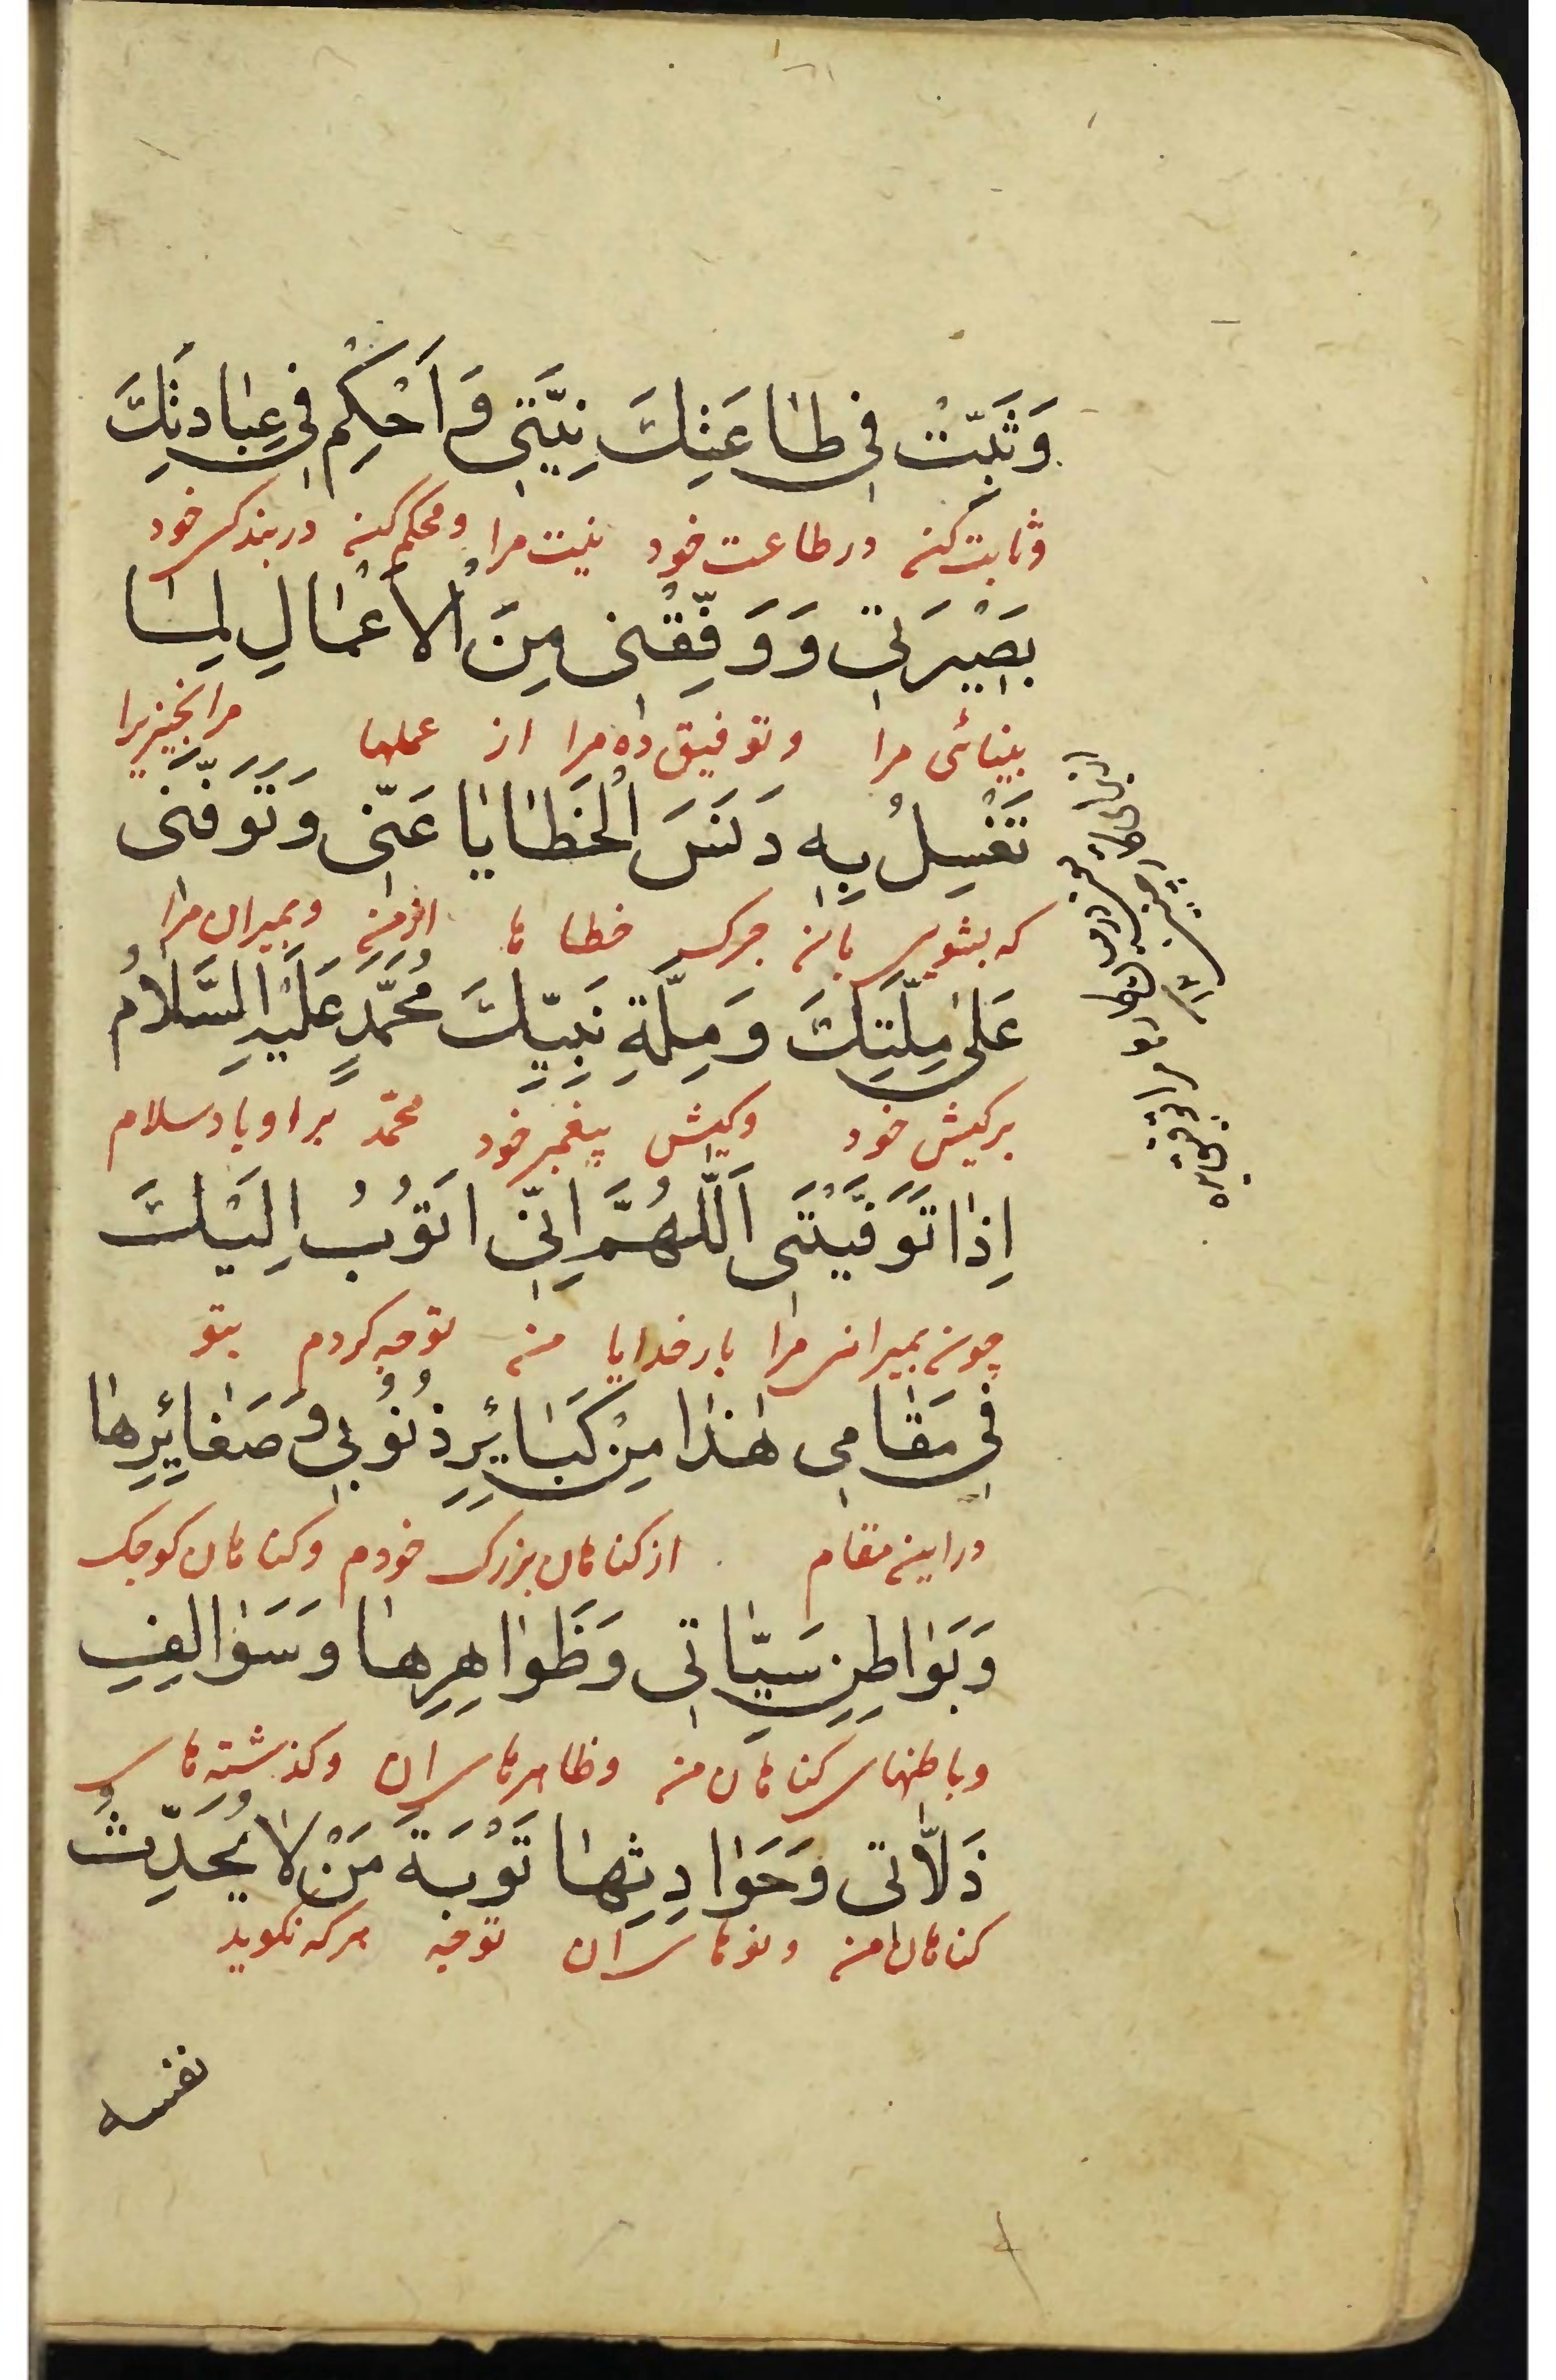 وَثَبِّتْ فی طٰاعَتِكَ نِیَّتی وَ اَحْكِمْ فی عِبٰادَتِكَ
وثابت کن در طاعت خود نیت مرا و محکم کن در بندکی خود
بَصیْرَتی وَ وَفِّقْنی مِنَ الْاَعْمٰالِ لِمٰا
بینائی مرا وتوفیق ده مرا از عملها مرانچیزیرا
تَغْسِلُ بِهِ دَنَسَ الْخَطٰایٰا عَنّی وَتَوَفَّنی
که بشویی بان چرک خطا ها از من وبمیران مرا
عَلیٰ مِلَّتِكَ وَمِلَّةِ نَبِیِّكَ مُحَمَّدٍ عَلَیْهِ السَّلٰامُ
برکیش خود وکیش پیغمبر خود محمّد براو باد سلام
اِذٰا تَوَفَّیْتَنی اَللّٰهُمَّ اِنّی اَتُوْبُ اِلَیْكَ
چون بمیرانی مرا بارخدایا من توبه کردم بتو
فی مَقٰامی هٰذٰا مِنْ كَبٰائِرِ ذُنُوْبی وَ صَغٰائِرِهٰا
دراین مقام از کناهان بزرک خودم وکناهان کوچک
وَبَوٰاطِنِ سَیِّاٰتی وَظَوٰاهِرِهٰا وَسَوٰالِفِ
وباطنهای کناهان من وظاهرهای ان وکذشته های
ذَلّٰاتی وَحَوٰادِثِهٰا تَوْبَةَ مَنْ لٰا یُحَدِّثُ
کناهان من ونوهای ان توبه هرکه نکوید
نفسه